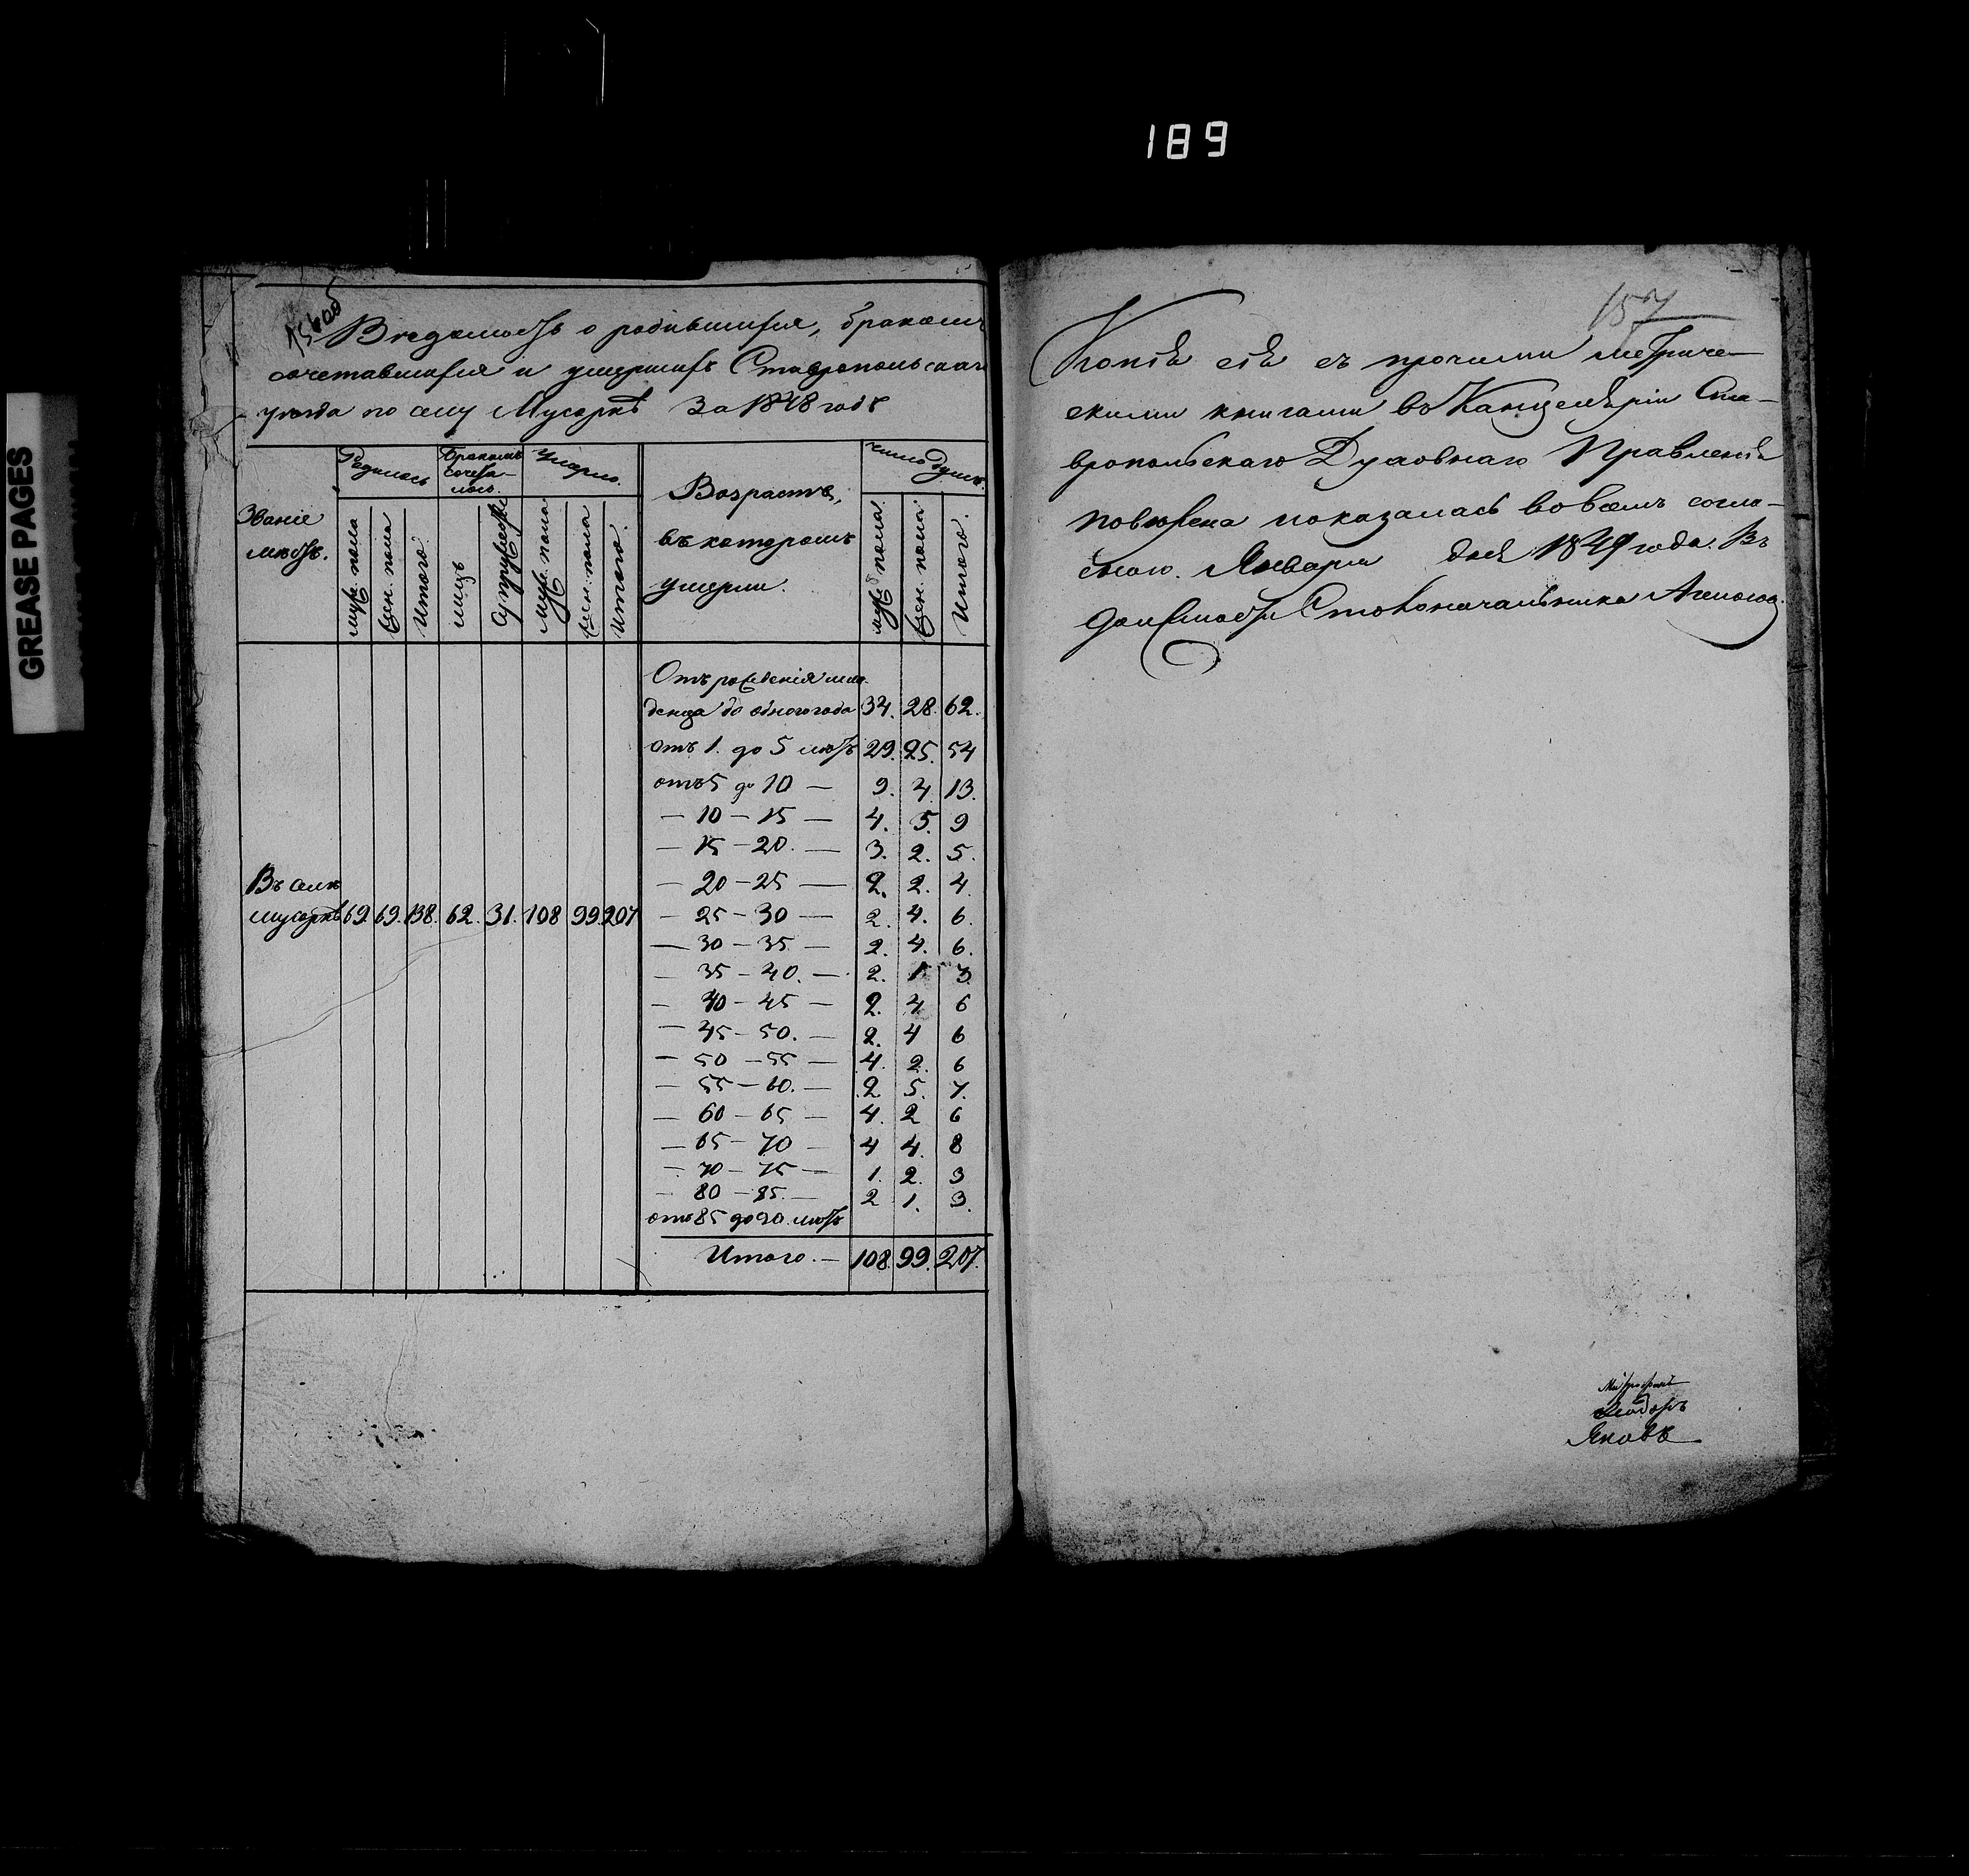 189
GREASE PAGES
156 об
Вѣдомость о родившихся, бракомъ
сочетавшихся и умершихъ Ставропольскаго
уѣзда по селу Мусоркѣ за 1848 годъ
Званіе мѣстъ.
Родилось
Бракомъ сочеталось.
Умерло.
Возрастъ, въ которомъ умерли.
Число душъ.
муж: пола
жен: пола
Итого
лицъ
Супружествъ
муж: пола
жен: пола
Итого.
муж: пола
жен: пола
Итого.
Отъ рожденія мла-
денца до одного года 34. 28. 62.
отъ 1. до 5 лѣтъ 29. 25. 54
отъ 5 до 10 — 9. 4. 13.
— 10 — 15 — 4. 5. 9
— 15 — 20. — 3. 2. 5.
— 20 — 25 — 2. 2. 4.
Въ селѣ
Мусоркѣ 69. 69. 138. 62. 31. 108 99. 207
— 25 — 30 — 2. 4. 6.
— 30 — 35 — 2. 4. 6.
— 35 — 40. — 2. 1 3
— 40 — 45 — 2. 4 6
— 45 — 50. — 2. 4 6
— 50 — 55 — 4. 2. 6
— 55 — 60. — 2 5. 7.
— 60 — 65 — 4. 2 6
— 65 — 70 — 4 4. 8
— 70 — 75 — 1. 2. 3
— 80 — 85. — 2 1. 3.
отъ 85 до 90. лѣтъ
Итого. — 108. 99. 207.
157
Копія сія съ прочими метриче-
скими книгами въ Канцеляріи Ста-
вропольскаго Духовнаго Правленія
повѣрена показалась во всемъ согла-
сною. Января дня 1849 года. Въ
должности Столоначальника
Митрофанъ
Ѳеодоръ
Яковъ